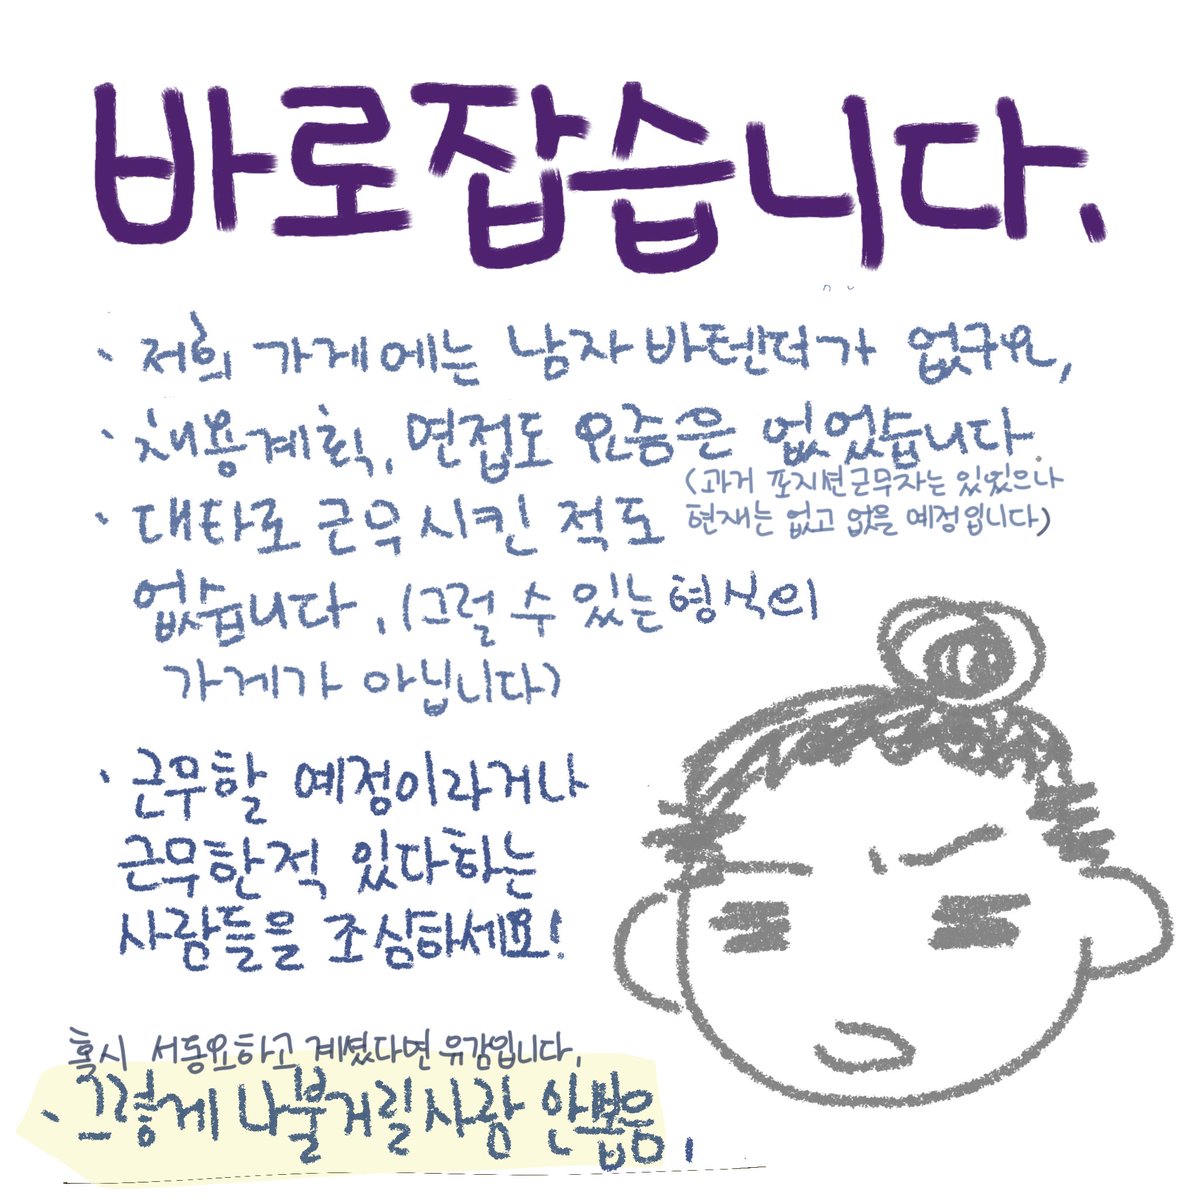 바로잡습니다.
· 저희 가게에는 남자 바텐더가 없구요,
· 채용계획, 면접도 요즘은 없었습니다.
(과거 포지션근무자는 있었으나
현재는 없고 없을 예정입니다)
· 대타로 근무시킨 적도
없습니다. (그럴 수 있는 형식의
가게가 아닙니다)
· 근무할 예정이라거나
근무한적 있다하는
사람들을 조심하세요!
혹시 서동요하고 계셨다면 유감입니다.
· 그렇게 나불거릴사람 안뽑음.